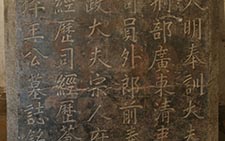 大明奉訓大夫
刑部廣東清吏
司員外郎前奉
政大夫宗人府
經歷司經歷
王公墓誌銘